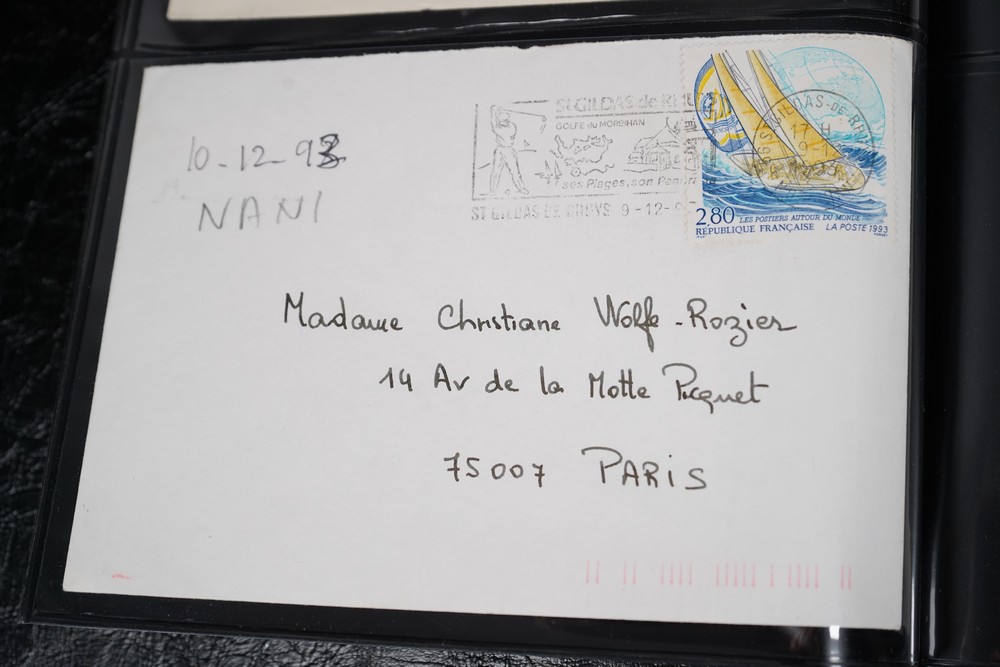 10-12-93
NANI
ST GILDAS de RHUYS
GOLFE du MORBIHAN
ses Plages, son
ST GILDAS DE RHUYS 9-12-
ST GILDAS-DE-RH
17 H
2,80 LES POSTIERS AUTOUR DU MONDE
RÉPUBLIQUE FRANÇAISE LA POSTE 1993
Madame Christiane Wolfe-Rozier
14 Av de la Motte Picquet
75007 PARIS